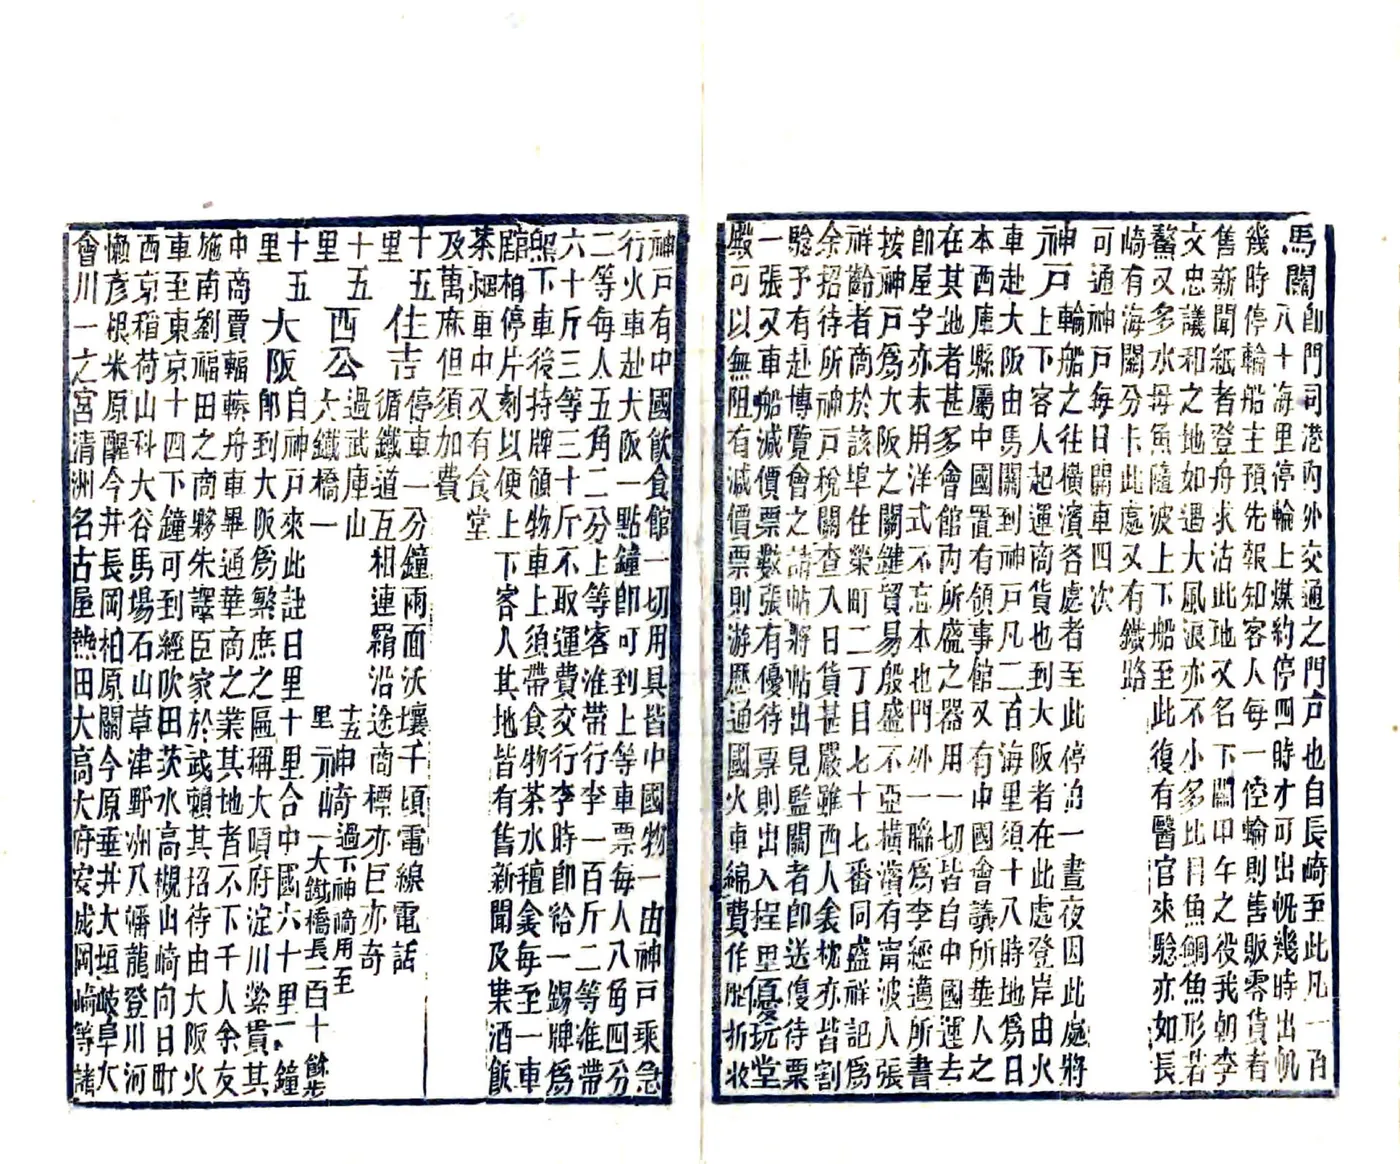 馬關卽門司港內外交通之門戸也自長崎至此凡一百
八十海里停輪上煤約停四時才可出帆幾時出帆
幾時停輪船主預先報知客人每一停輪則售販零貨者
售新聞紙者登舟求沽此地又名下關甲午之役我朝李
文忠議和之地如遇大風浪亦不小多比目魚鯛魚形若
鰲又多水母魚隨波上下船至此復有醫官來驗亦如長
崎有海關分卡此處又有鐵路
可通神戸每日開車四次
神戸輪船之往橫濱各處者至此停泊一晝夜因此處將
元戸上下客人起運商貨也到大阪者在此處登岸由火
車赴大阪由馬關到神戸凡二百海里須十八時地爲日
本西庫縣屬中國置有領事館又有中國會議所華人之
在其地者甚多會館內所盛之器用一切皆自中國運去
卽屋宇亦未用洋式不忘本也門外一聯爲李經邁所書
按神戸爲大阪之關鍵貿易殷盛不亞橫濱有甯波人張
祥齡者商於該埠住榮町二丁目七十七番同盛祥記爲
余招待所神戸稅關查入日貨甚嚴雖西人衾枕亦皆割
驗予有赴博覽會之請帖將帖出見監關者卽送優待票
一張又車船減價票數張有優待票則出入程里優玩堂
殿可以無阻有減價票則游歷通國火車綿費作壓折收
神戸有中國飲食館一切用具皆中國物一由神戸乘急
行火車赴大阪一點鐘卽可到上等車票每人八角四分
二等每人五角二分上等客准帶行李一百斤二等准帶
六十斤三等三十斤不取運費交行李時卽給一錫牌爲
照下車後持牌領物車上須帶食物茶水種食每至一車
館相停片刻以便上下客人其地皆有舊新聞及菓酒飯
茶烟車中又有食堂
及萬麻但須加費
十五里 住吉 停車一分鐘兩面沃壤千頃電線電話
循鐵道互相連羂沿途商標亦巨亦奇
十五里 西公 過武庫山
大鐵橋一
十五里 神崎 過下神崎用至
元崎 一大鐵橋長一百十餘步
十五里 大阪 自神戸來此註日里十里合中國六十里一鐘
卽到大阪爲繁庶之區稱大頃府淀川縈貫其
中商賈輻輳舟車畢通華商之業其地者不下千人余友
施南劉福田之商夥朱譯臣家於武賴其招待由大阪火
車至東京十四下鐘可到經吹田茨水高槻山崎向日町
西京稻荷山科大谷馬場石山草津野洲八幡龍登川河
懶彥根米原醒今井長岡柏原關今原垂井大垣岐阜大
會川一之宮清洲名古屋熱田大高大府安城岡崎等諸